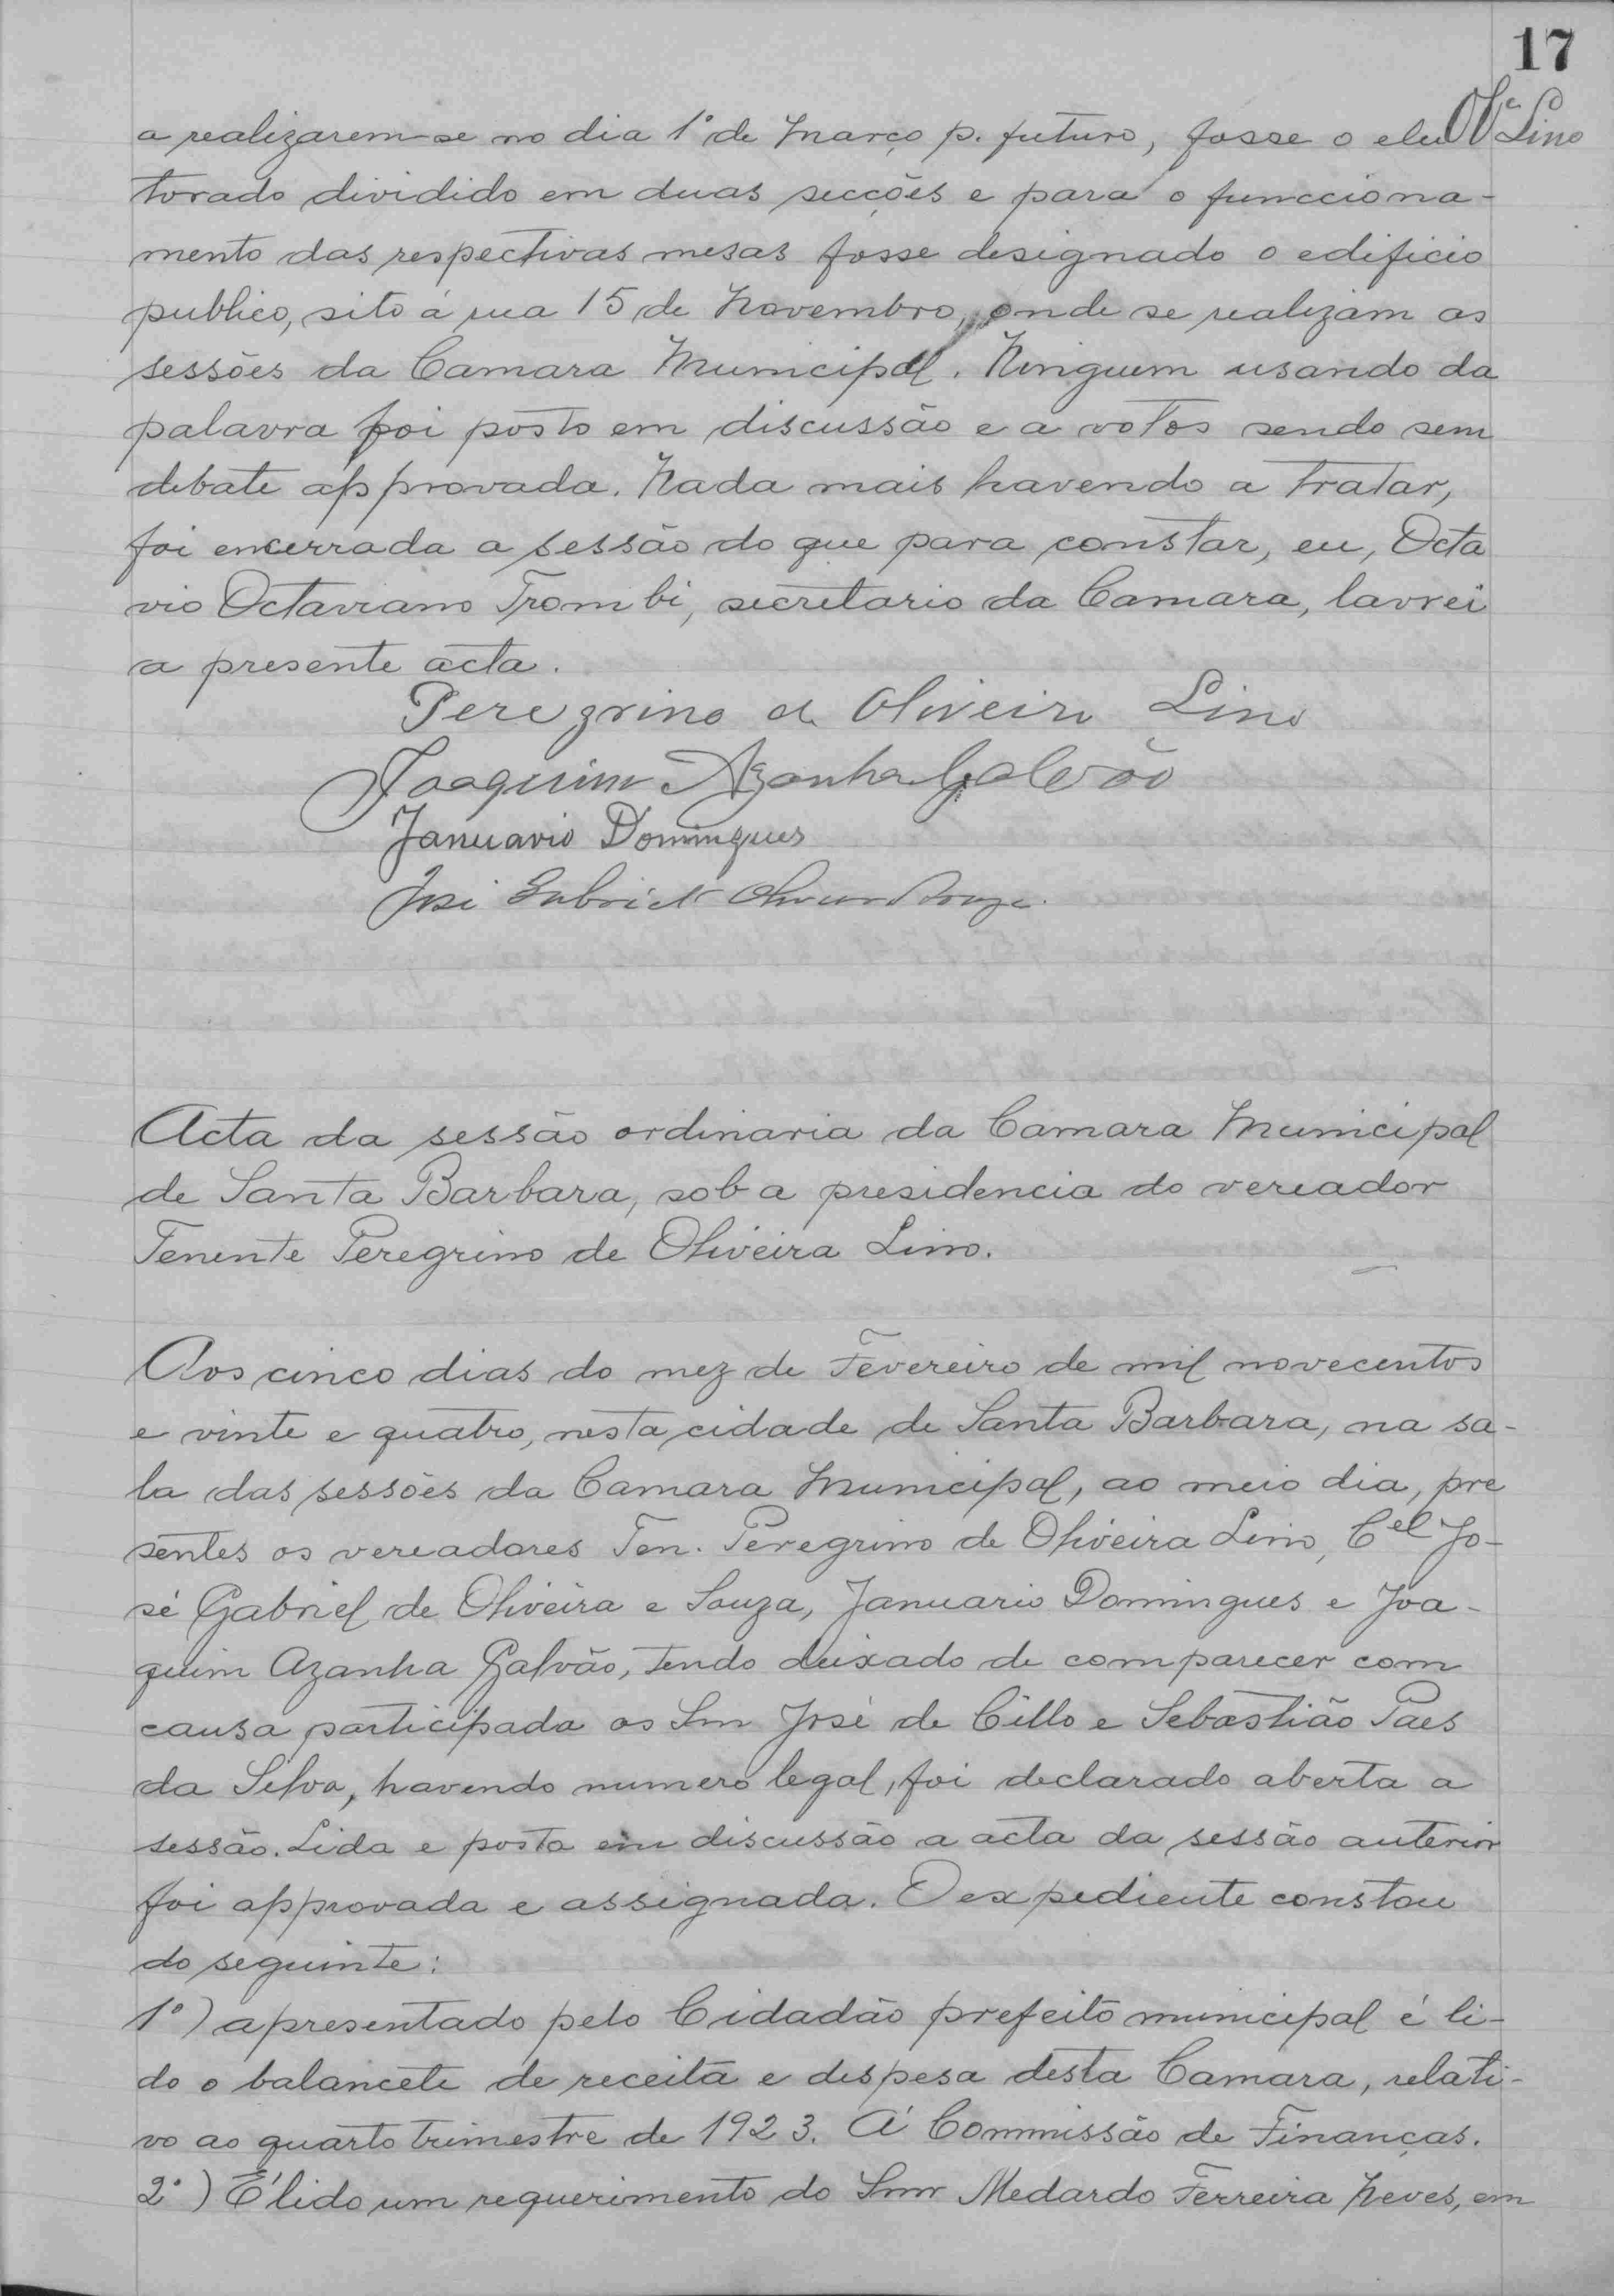 17
Ol.ª Lino
a realizarem-se no dia 1º de Março p. futuro, fosse o elei
torado dividido em duas secções e para o funcciona-
mento das respectivas mesas fosse designado o edificio
publico, sito á rua 15 de Novembro, onde se realizam as
sessões da Camara Municipal. Ninguem usando da
palavra foi posto em discussão e a votos sendo sem
debate approvada. Nada mais havendo a tratar,
foi encerrada a sessão do que para constar, eu, Octa
vio Octaviano Trombi, secretario da Camara, lavrei
a presente acta.
Peregrino de Oliveira Lino
Joaquim Azanha Galvão
Januario Domingues
José Gabriel Oliveira Souza.
Acta da sessão ordinaria da Camara Municipal
de Santa Barbara, sob a presidencia do vereador
Tenente Peregrino de Oliveira Lino.
Aos cinco dias do mez de Fevereiro de mil novecentos
e vinte e quatro, nesta cidade de Santa Barbara, na sa-
la das sessões da Camara Municipal, ao meio dia, pre
sentes os vereadores Ten. Peregrino de Oliveira Lino, Cel Jo-
sé Gabriel de Oliveira e Souza, Januario Domingues e Joa-
quim Azanha Galvão, tendo deixado de comparecer com
causa participada os Snr José de Cillo e Sebastião Paes
da Silva, havendo numero legal, foi declarado aberta a
sessão. Lida e posta em discussão a acta da sessão anterior
foi approvada e assignada. O expediente constou
do seguinte:
1º) apresentado pelo Cidadão prefeito municipal é li-
do o balancete de receita e despesa desta Camara, relati-
vo ao quarto trimestre de 1923. Á Commissão de Finanças.
2º) É lido um requerimento do Snr Medardo Ferreira Neves, em